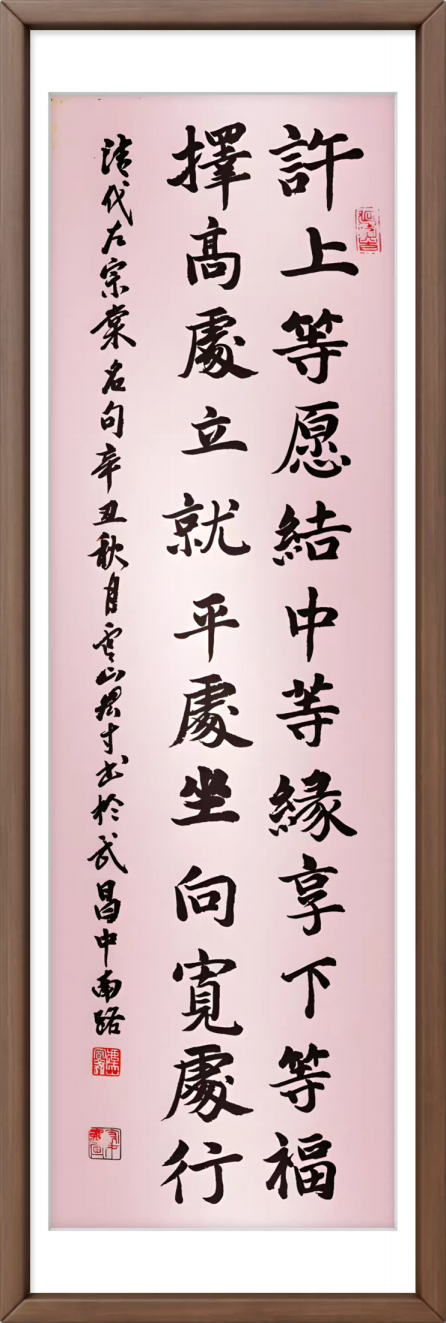 許上等愿結中等緣享下等福
擇高處立就平處坐向寬處行
清代左宗棠名句辛丑秋月雲山得寸书於武昌中南路